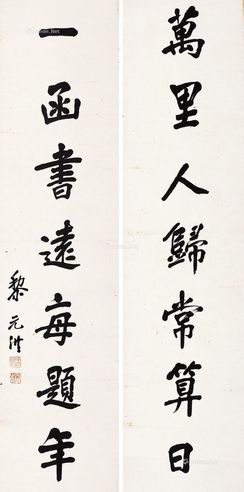 萬里人歸常算日
一函書遠每題年
黎元洪